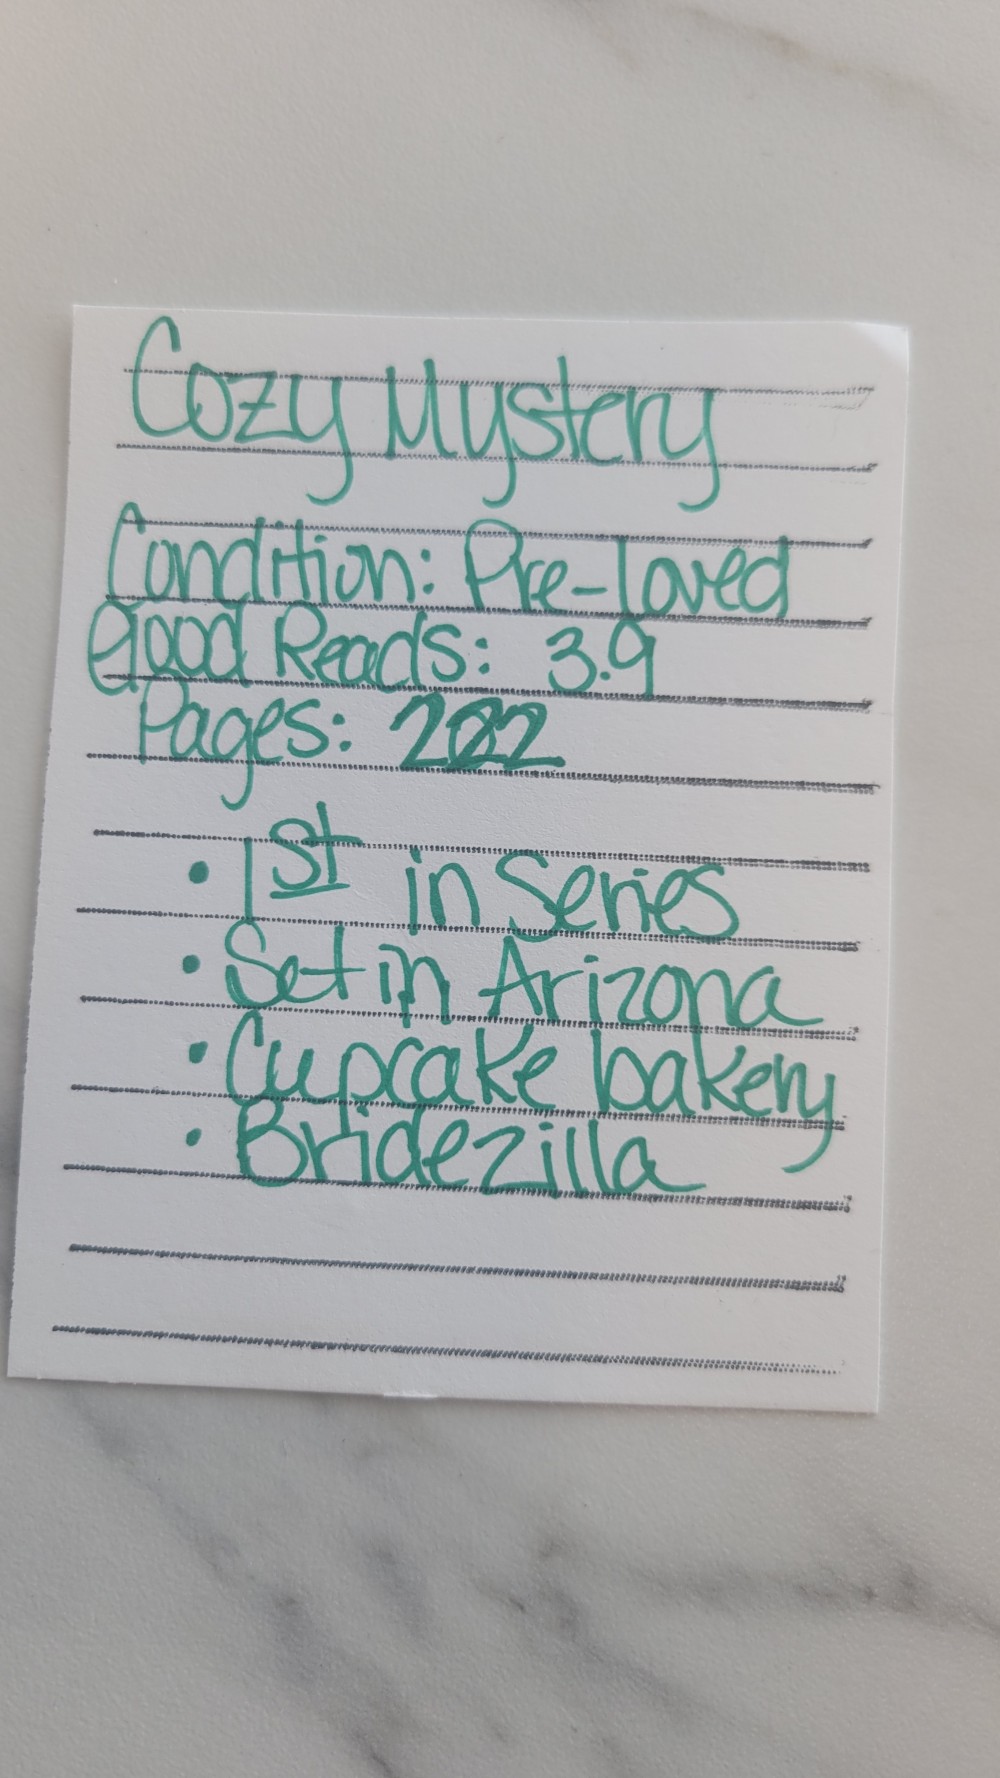 Cozy Mystery
Condition: Pre-loved
Good Reads: 3.9
Pages: 202
• 1st in Series
• Set in Arizona
• Cupcake bakery
• Bridezilla